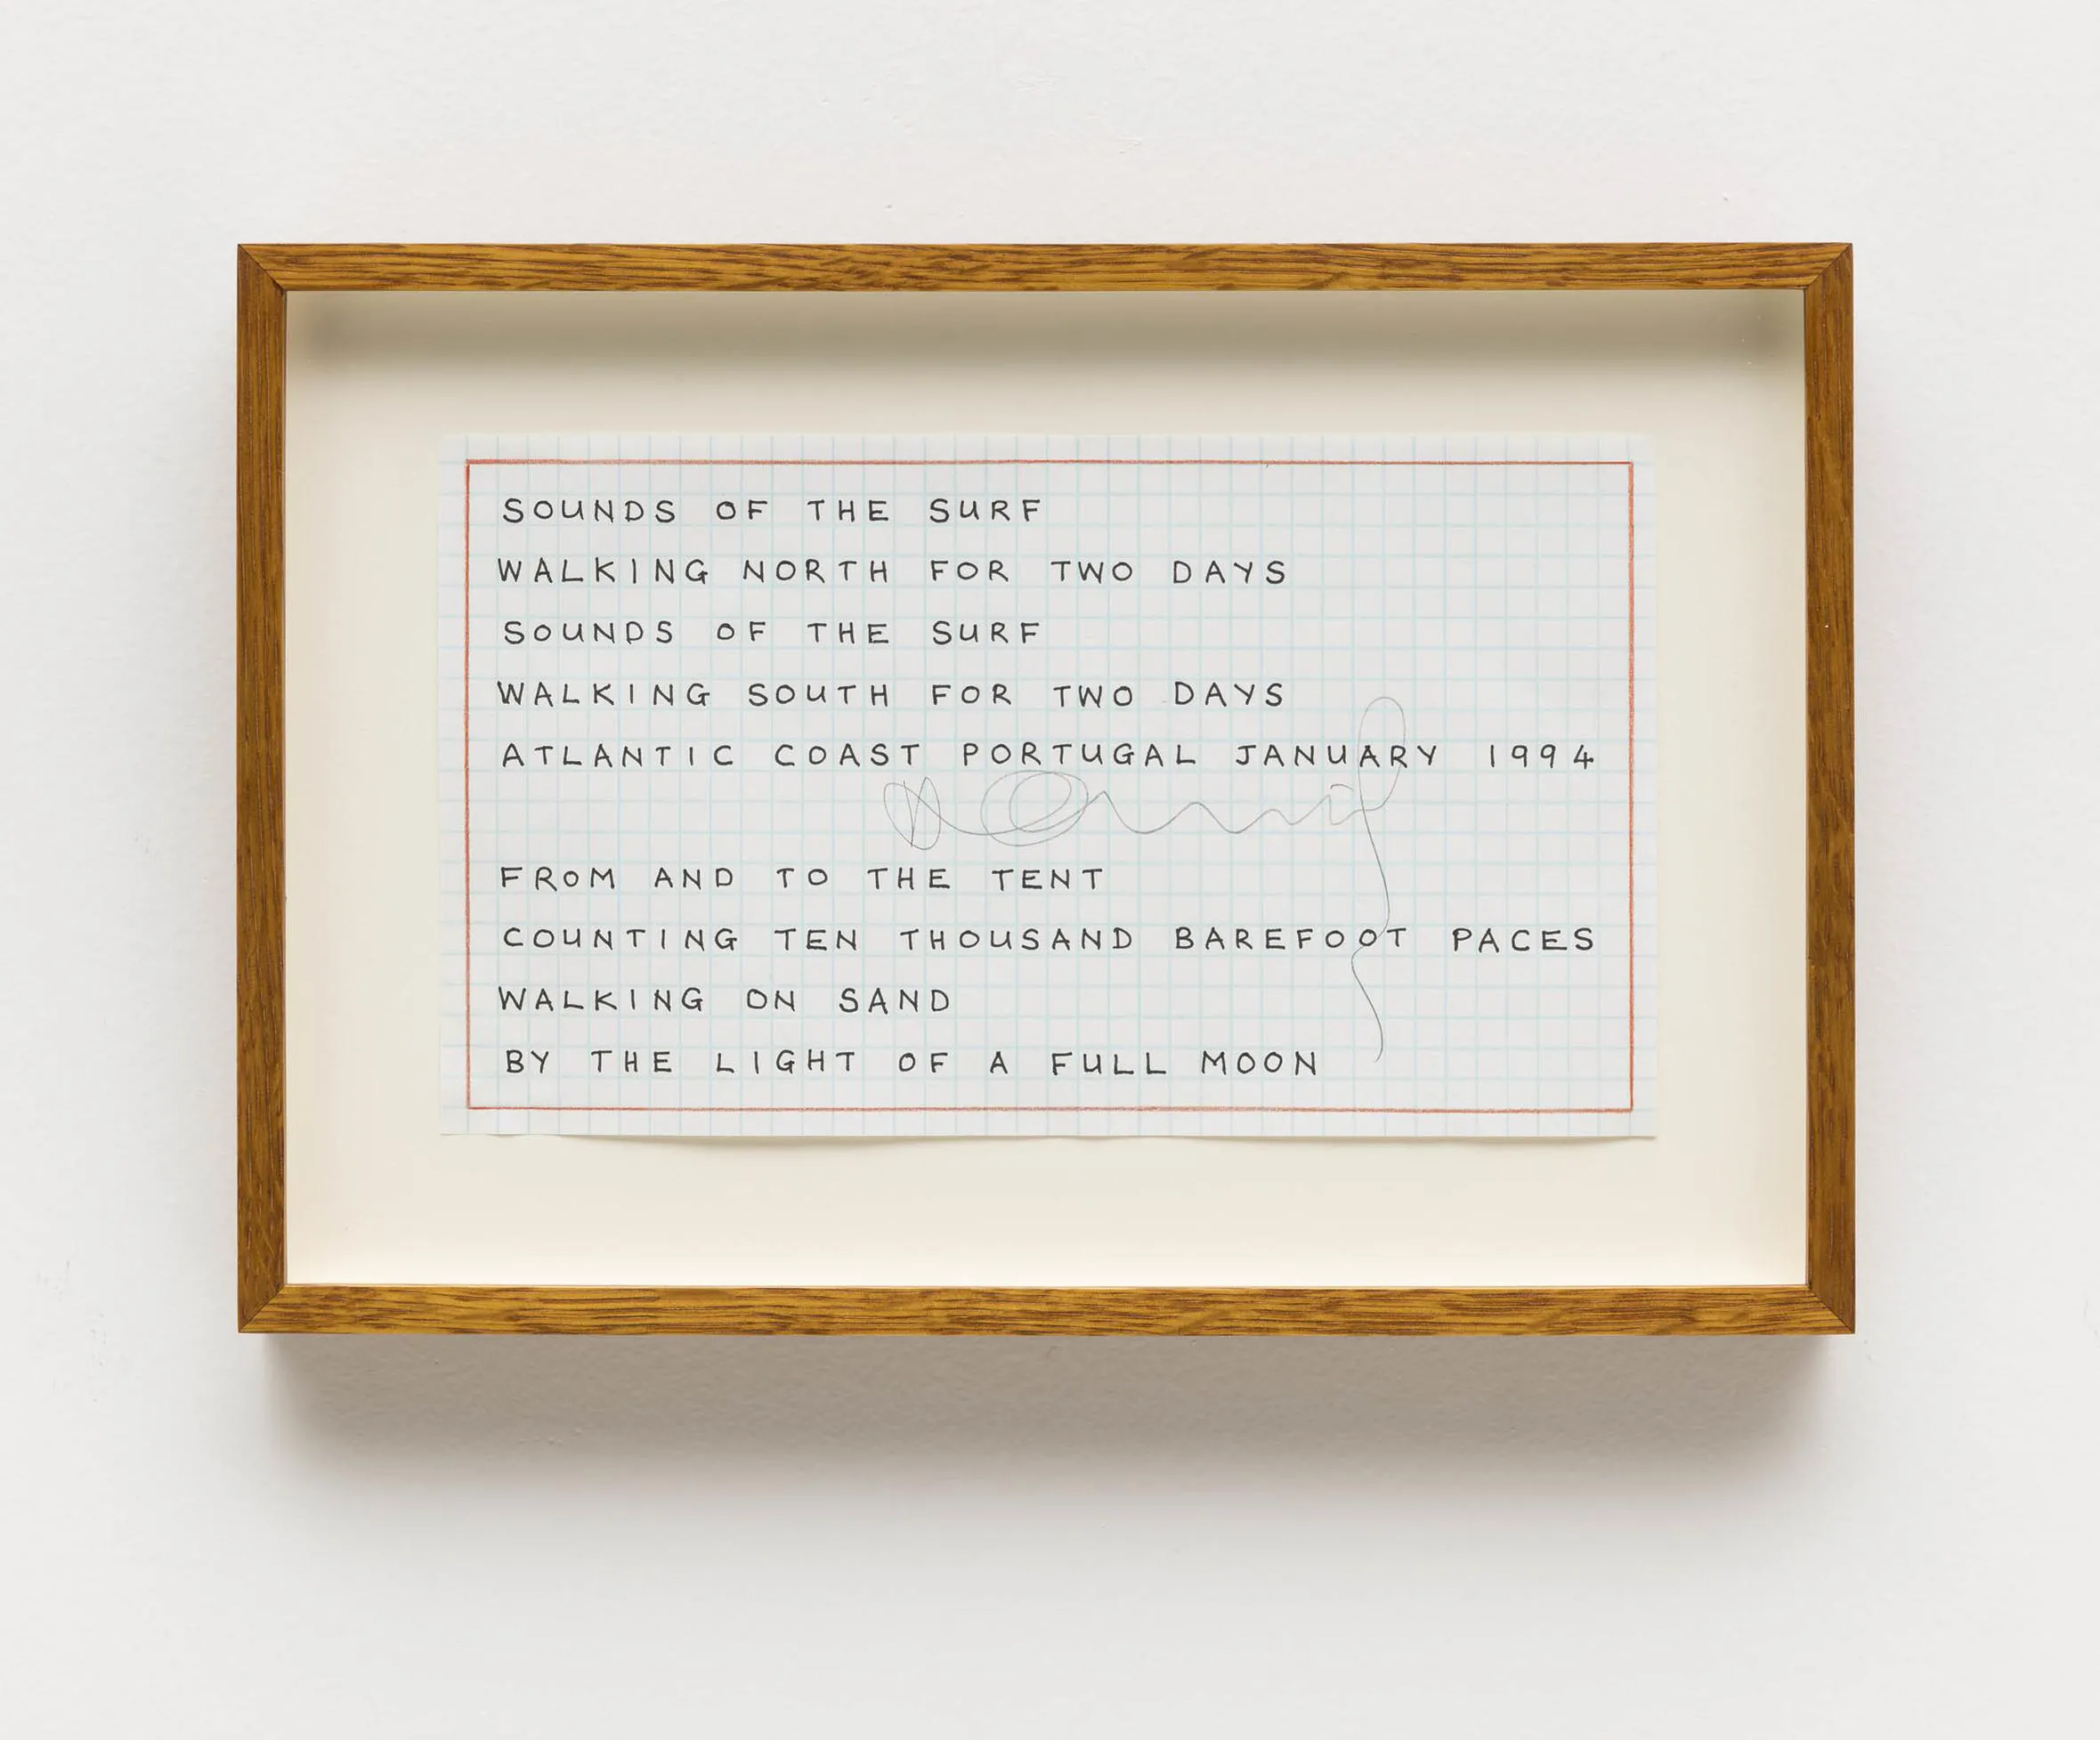 SOUNDS OF THE SURF
WALKING NORTH FOR TWO DAYS
SOUNDS OF THE SURF
WALKING SOUTH FOR TWO DAYS
ATLANTIC COAST PORTUGAL JANUARY 1994
FROM AND TO THE TENT
COUNTING TEN THOUSAND BAREFOOT PACES
WALKING ON SAND
BY THE LIGHT OF A FULL MOON